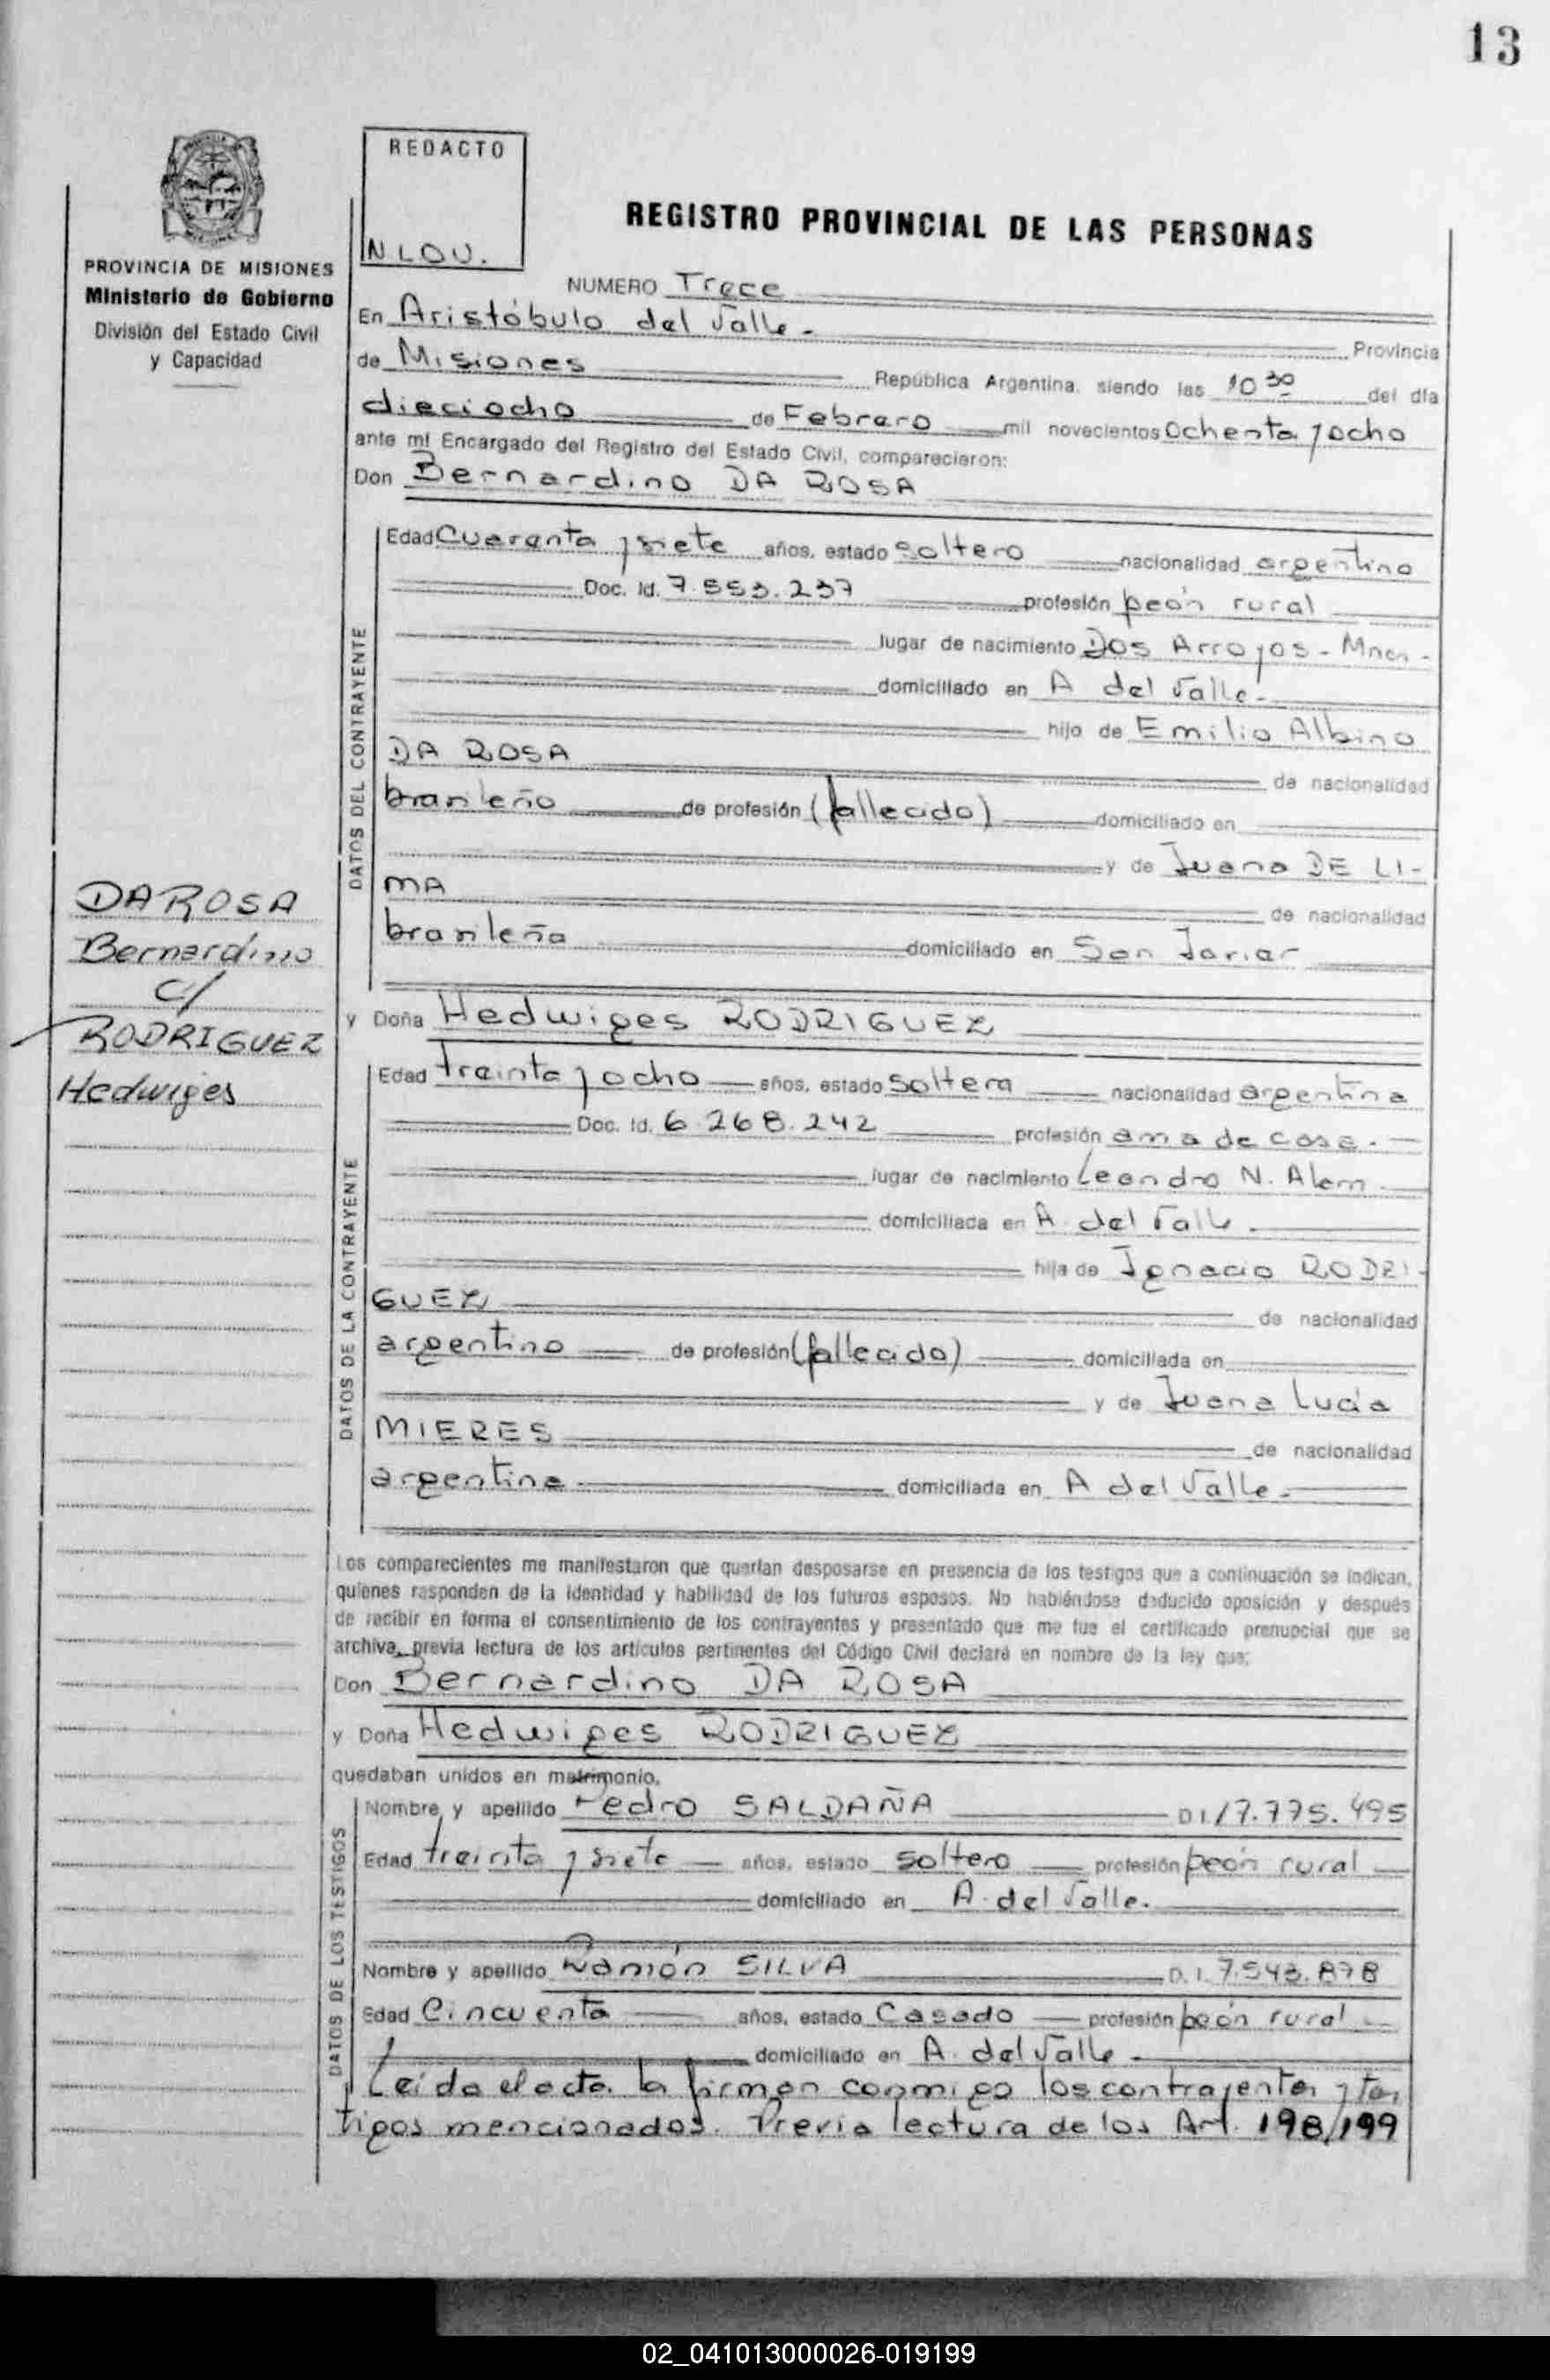 13
REDACTO
N L O V.
PROVINCIA DE MISIONES
Ministerio de Gobierno
División del Estado Civil
y Capacidad
REGISTRO PROVINCIAL DE LAS PERSONAS
NUMERO Trece
En Aristóbulo del Valle - Provincia
de Misiones República Argentina, siendo las 10 30 del día
dieciocho de Febrero mil novecientos Ochenta y ocho
ante mí Encargado del Registro del Estado Civil, comparecieron:
Don Bernardino DA ROSA
DATOS DEL CONTRAYENTE
Edad Cuarenta y siete años, estado soltero nacionalidad argentino
Doc. Id. 7.553.237 profesión peón rural
lugar de nacimiento Dos Arroyos - Mnes -
domiciliado en A del Valle -
hijo de Emilio Albino
DA ROSA de nacionalidad
brasileño de profesión (fallecido) domiciliado en
y de Juana DE LI-
MA de nacionalidad
brasileña domiciliado en San Javier
DA ROSA
Bernardino
c/
RODRIGUEZ
Hedwiges
y Doña Hedwiges RODRIGUEZ
DATOS DE LA CONTRAYENTE
Edad treinta y ocho años, estado soltera nacionalidad argentina
Doc. Id. 6.268.242 profesión ama de casa. -
lugar de nacimiento Leandro N. Alem -
domiciliada en A. del Valle -
hija de Ignacio RODRI-
GUEZ de nacionalidad
argentino de profesión (fallecido) domiciliada en
y de Juana Lucía
MIERES de nacionalidad
argentina domiciliada en A del Valle -
Los comparecientes me manifestaron que querían desposarse en presencia de los testigos que a continuación se indican,
quienes responden de la identidad y habilidad de los futuros esposos. No habiéndose deducido oposición y después
de recibir en forma el consentimiento de los contrayentes y presentado que me fue el certificado prenupcial que se
archiva, previa lectura de los artículos pertinentes del Código Civil declaré en nombre de la ley que:
Don Bernardino DA ROSA
y Doña Hedwiges RODRIGUEZ
quedaban unidos en matrimonio.
DATOS DE LOS TESTIGOS
Nombre y apellido Pedro SALDAÑA D I / 7.775.495
Edad treinta y siete años, estado soltero profesión peón rural
domiciliado en A. del Valle.
Nombre y apellido Ramón SILVA D. I. 7.543.878
Edad Cincuenta años, estado Casado profesión peón rural
domiciliado en A. del Valle -
Leída el acta la firman conmigo los contrayentes y tes
tigos mencionados. Previa lectura de los Art. 198/199
02_041013000026-019199